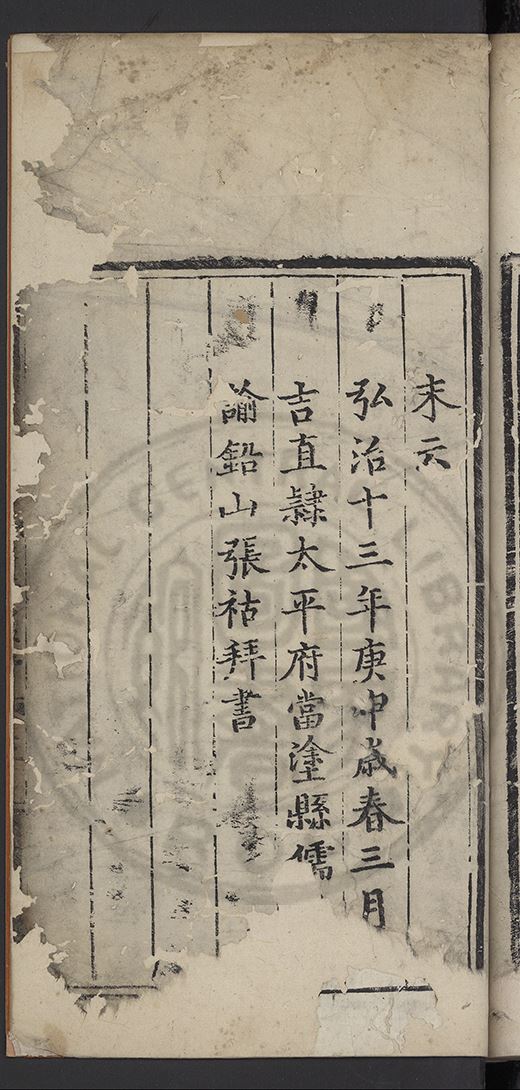 末云
弘治十三年庚申歲春三月
吉直隸太平府當塗縣儒
諭鉛山張祜拜書